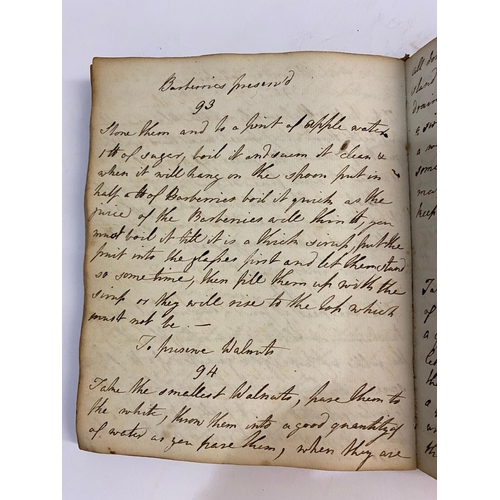 Barberries preserv'd
93
Stone them and to a pint of apple water
1 ℔ of sugar, boil it and scum it clean &
when it will hang on the spoon put in
half a ℔ of Barberries boil it quick as the
juice of the Barberries will thin it, you
must boil it till it is a thick sirup, put the
fruit into the glasses first and let them stand
so some time, then fill them up with the
sirup or they will rise to the top which
must not be. —
To preserve Walnuts
94
Take the smallest Walnuts, pare them to
the white, throw them into a good quantity
of water as you pare them, when they are
all
stand
drain
& 
a w
some
ma
keep
Ta
of
a
let
th
a
a
th